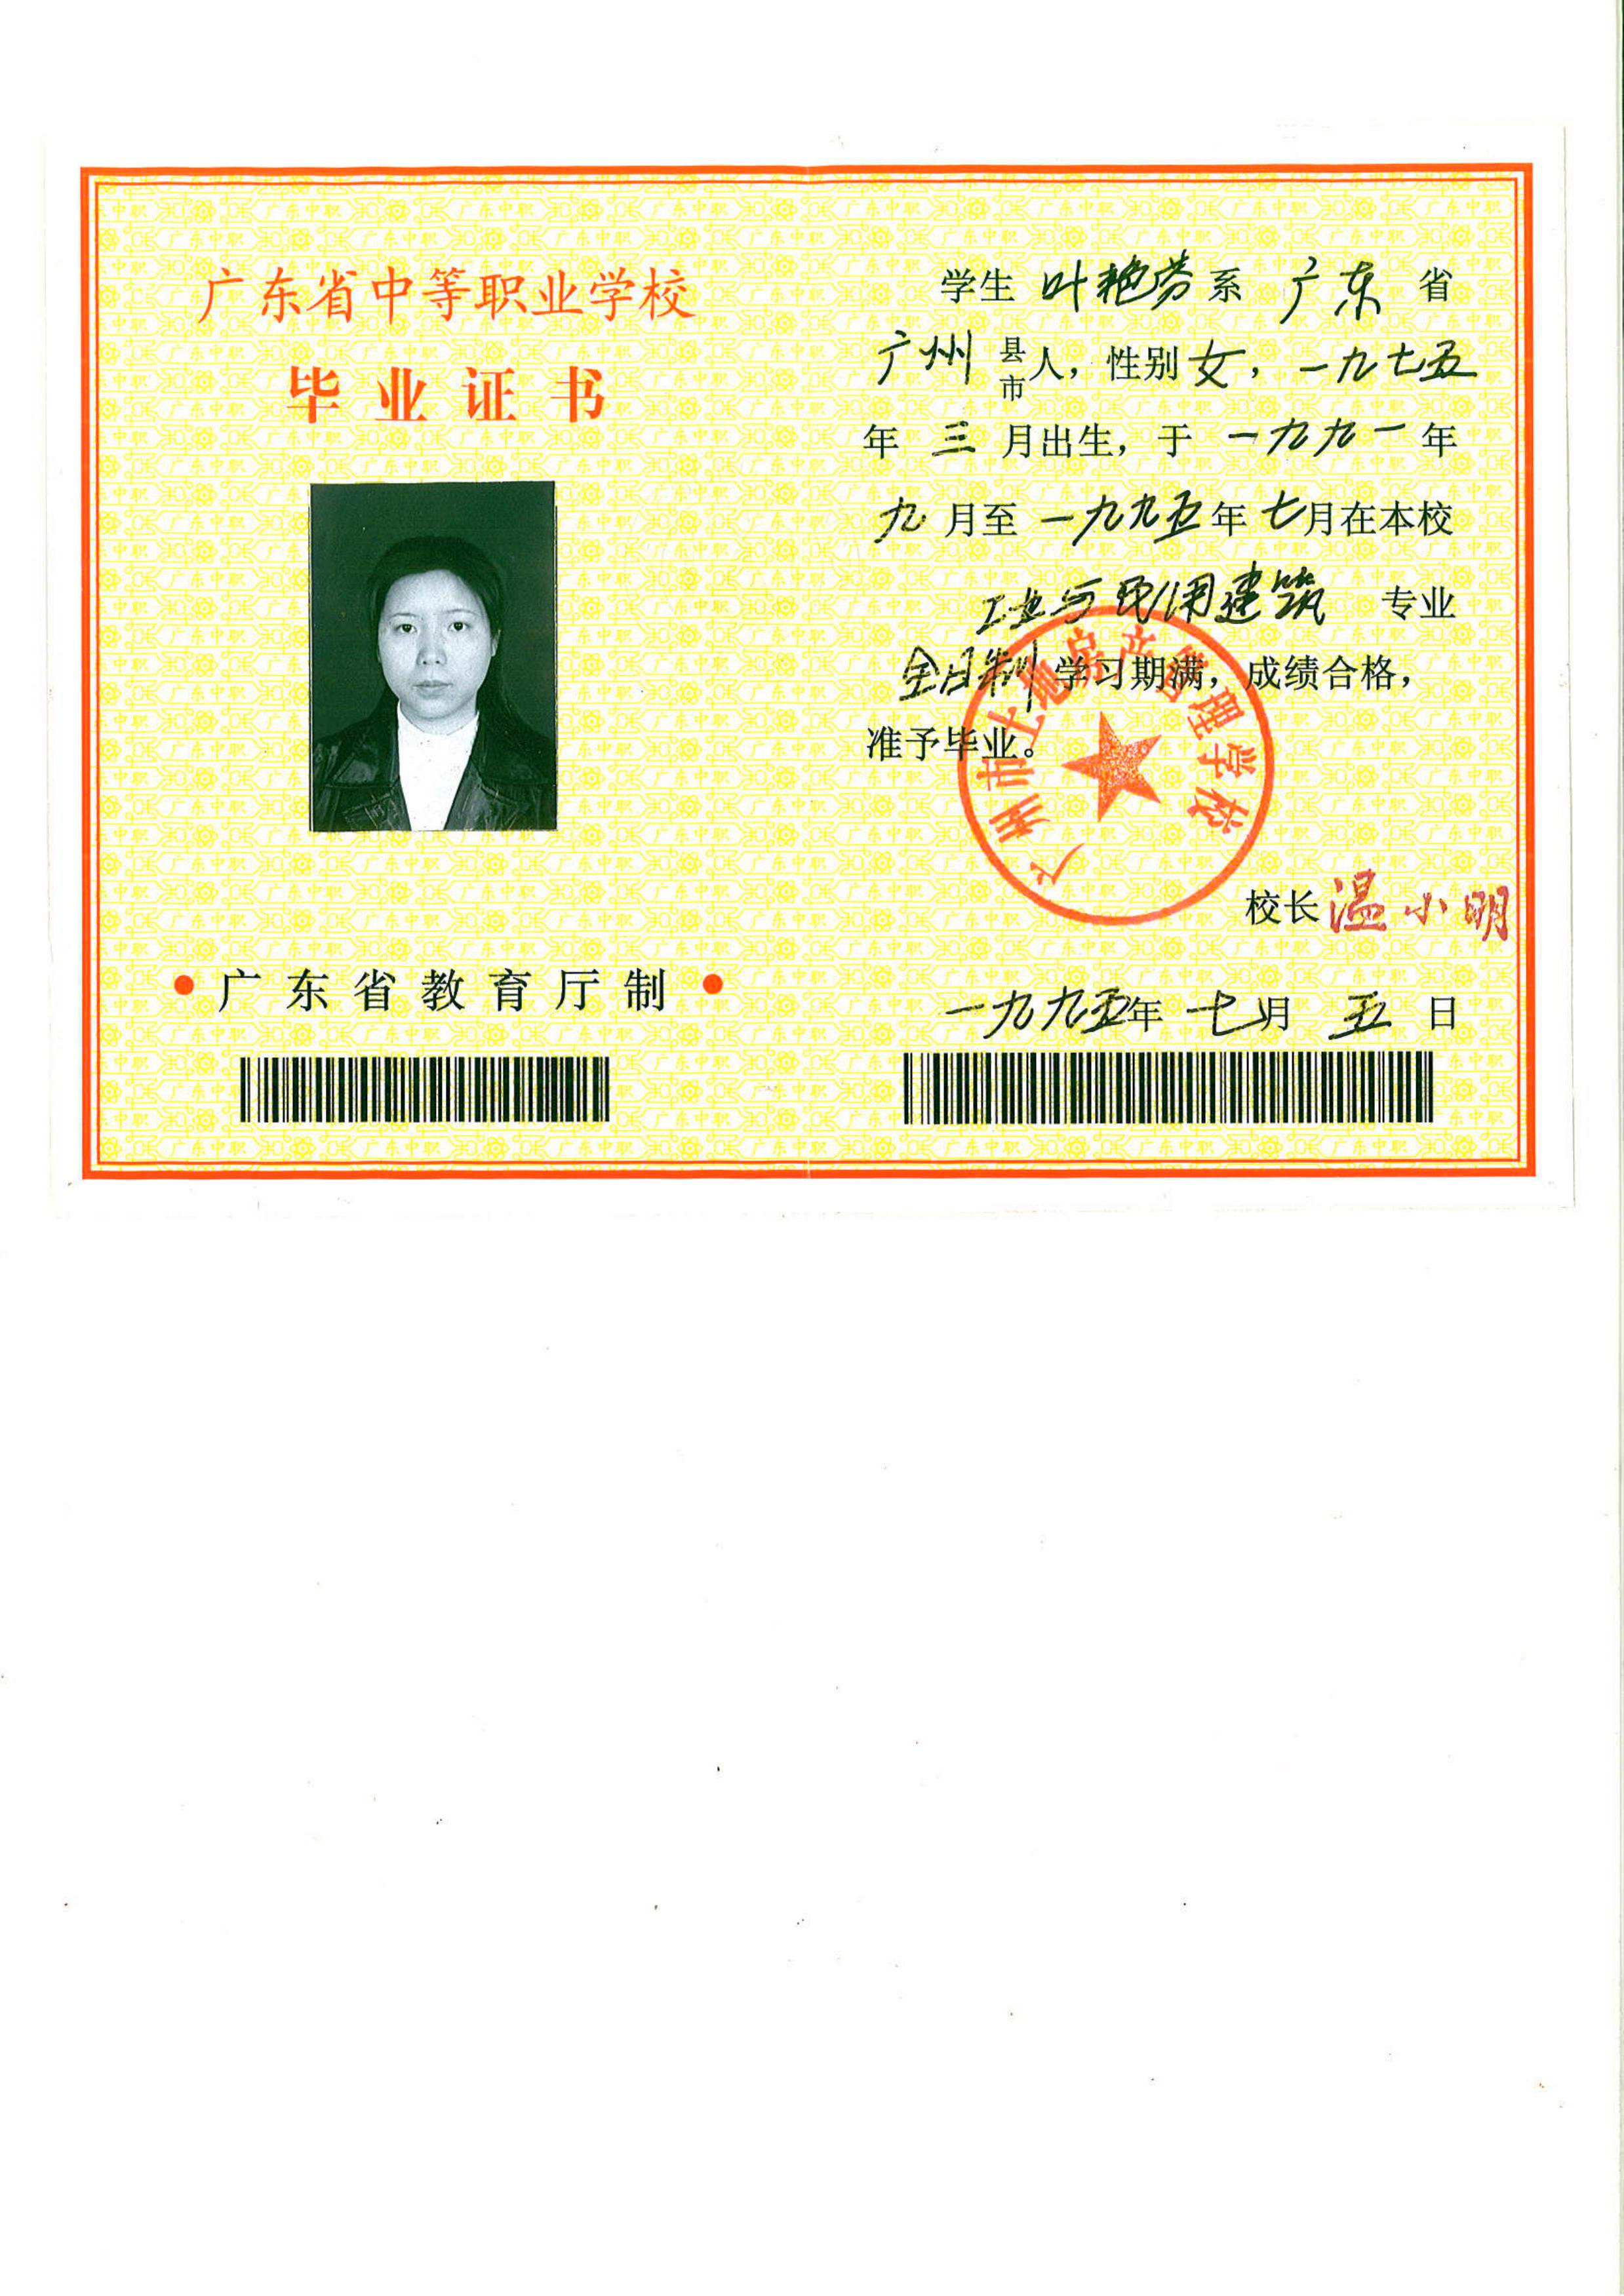 广东省中等职业学校
毕业证书
广东省教育厅制
学生 叶艳芬 系 广东 省
广州 县市人，性别 女，一九七五
年 三 月出生，于 一九九一 年
九 月至 一九九五 年 七 月在本校
工业与民用建筑 专业
全日制 学习期满，成绩合格，
准予毕业。
广州市土地房产管理学校
校长 温小明
一九九五年 七月 五 日